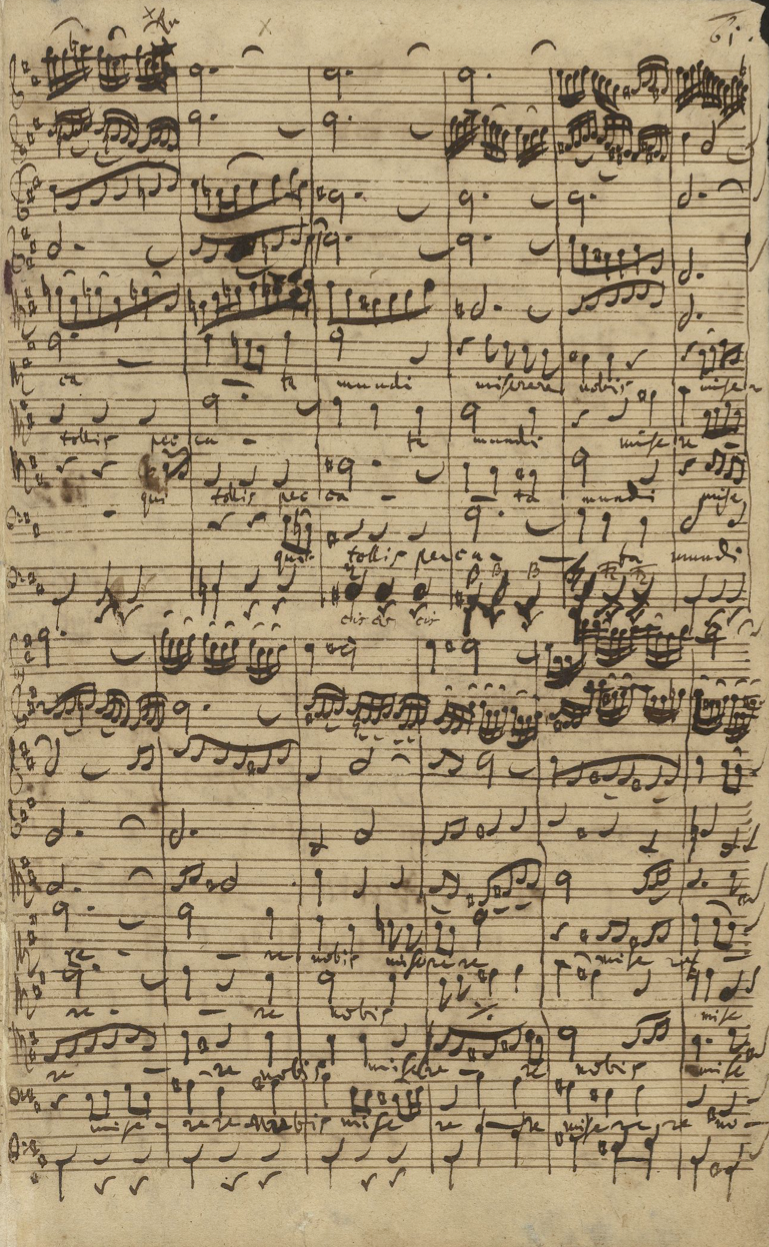 61.
ca - ta mundi miserere nobis mise
tollis pec ca - ta mundi mise re -
qui tollis pec ca - ta mundi mise
qui tollis pecca - ta mundi
cis cis cis
re - - re nobis miserere mise re
re - - re nobis mise
re - re nobis misere - re nobis mise
mise - re re nobis mise re - re misere re no -